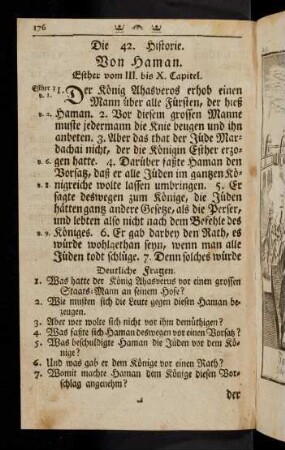 176
Die 42. Historie.
Von Haman.
Esther vom III. bis X. Capitel.
Esther 3. v. 1. 1. Der König Ahasveros erhob einen
Mann über alle Fürsten, der hieß
v. 2. Haman. 2. Vor diesem grossen Manne
muste jedermann die Knie beugen und ihn
anbeten. 3. Aber das that der Jüde Mar-
dachai nicht, der die Königin Esther erzo-
v. 6. gen hatte. 4. Darüber faßte Haman den
Vorsatz, daß er alle Jüden im gantzen Kö-
v. 8 nigreiche wolte lassen umbringen. 5. Er
sagte deswegen zum Könige, die Jüden
hätten gantz andere Gesetze, als die Perser,
und lebten also nicht nach dem Befehle des
v. 9. Königes. 6. Er gab darbey den Rath, es
würde wohlgethan seyn, wenn man alle
Jüden todt schlüge. 7. Denn solches würde
Deutliche Fragen.
1. Was hatte der König Ahasverus vor einen grossen
Staats-Mann an seinem Hofe?
2. Wie musten sich die Leute gegen diesen Haman be-
zeugen.
3. Aber wer wolte sich nicht vor ihm demüthigen?
4. Was faßte sich Haman deswegen vor einen Vorsatz?
5. Was beschuldigte Haman die Jüden vor dem Kö-
nige?
6. Und was gab er dem Könige vor einen Rath?
7. Womit machte Haman dem Könige diesen Vor-
schlag angenehm?
der